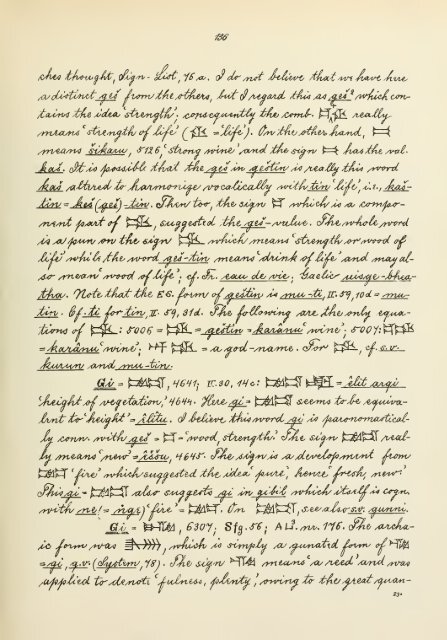 136
ches thought, Sign-List, 75 a. I do not believe that we have here
a distinct geš from the others, but I regard this as geš² which con-
tains the idea 'strength'; consequently the comb. really
means 'strength of life' ( = 'life'). On the other hand,
means šikaru, 5126, 'strong wine' and the sign has the val.
kaš. It is possible that the geš in geštin is really this word
kaš altered to harmonize vocalically with tin 'life', i.e., kaš-
tin = keš (geš)-tin. Then too, the sign which is a compo-
nent part of , suggested the geš-value. The whole word
is a pun on the sign which means 'strength or wood of
life' while the word geš-tin means 'drink of life' and may al-
so mean 'wood of life'; cf. Fr. eau de vie; Gaelic uisge-bhea-
tha. Note that the ES. form of geštin is mu-ti, II. 59, 10d = mu-
tin. Cf. ti for tin, II. 59, 31d. The following are the only equa-
tions of : 5006 = = geštin = karânu 'wine'; 5007:
= karânu 'wine'; = a god-name. For , cf. s.v.
kurun and mu-tin.
Gi = , 4641; 30, 14c: = êlit arqi
'height of vegetation,' 4644. Here gi = seems to be equiva-
lent to 'height' = êlîtu. I believe this word gi is paronomastical-
ly conn. with geš = = 'wood, strength.' The sign real-
ly means 'new' = êšśu, 4645. The sign is a development from
'fire' which suggested the idea 'pure', hence 'fresh, new.'
This gi = also suggests gi in gibil which itself is cogn.
with ne! = 'fire' = . On , see also s.v. gunni.
Gi = , 6307; Sfg. 56; AL³. nr. 176. The archa-
ic form was , which is simply a gunated form of
= gi, q.v. (System, 78). The sign means 'a reed' and was
applied to denote 'fulness, plenty', owing to the great quan-